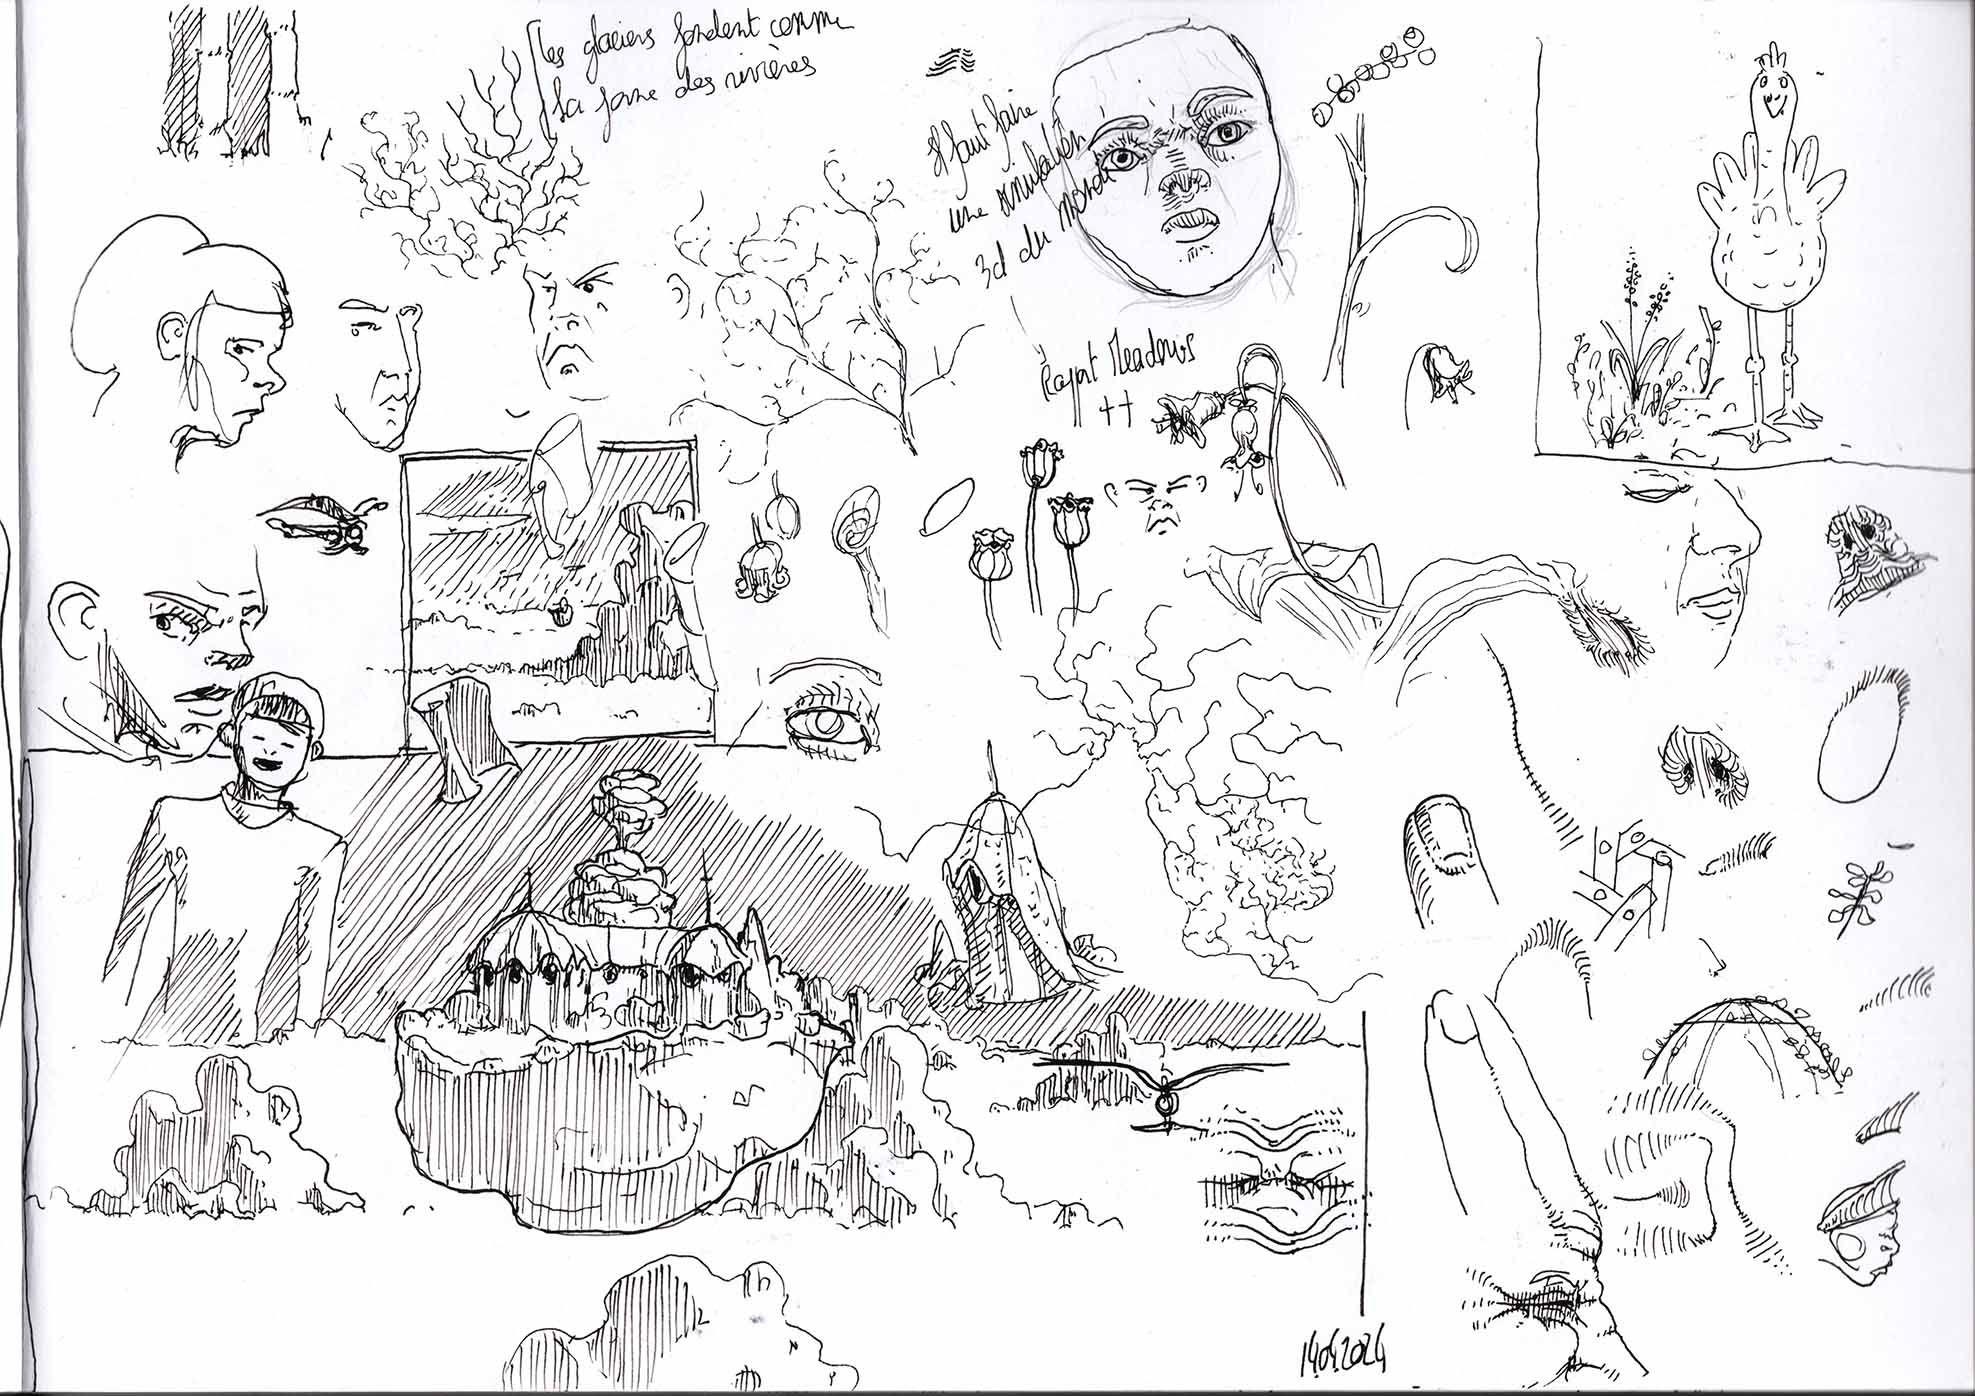 les glaciers fondent comme
la forme des rivières
Il faut faire
une simulation
3d du monde
Rapport Meadows
++
14.04.2024